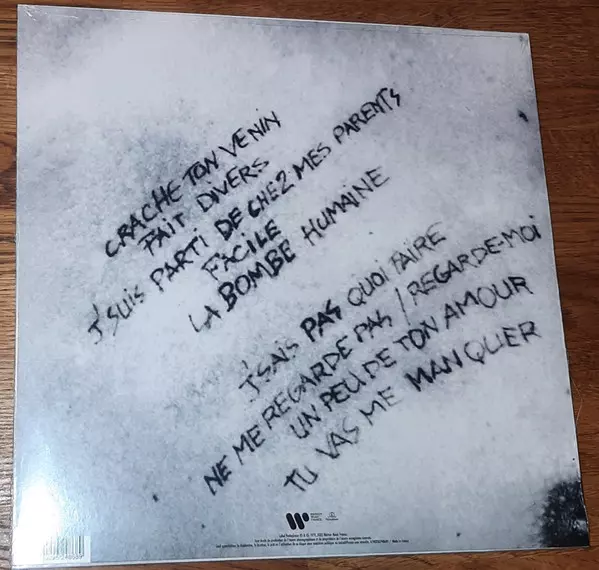 CRACHE TON VENIN
FAIT DIVERS
J'SUIS PARTI DE CHEZ MES PARENTS
FACILE
LA BOMBE HUMAINE
J'SAIS PAS QUOI FAIRE
NE ME REGARDE PAS / REGARDE-MOI
UN PEU DE TON AMOUR
TU VAS ME MANQUER